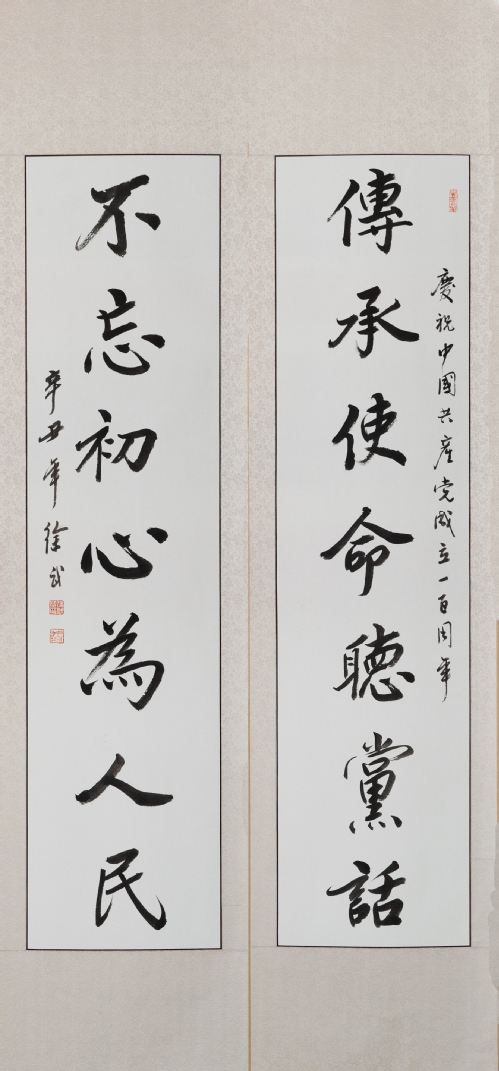 慶祝中國共産党成立一百周年
傳承使命聽黨話
不忘初心為人民
辛丑年徐武